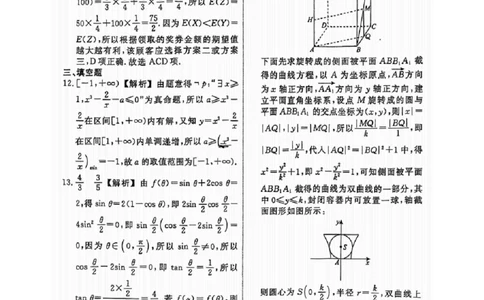 100)=2/3×1/4+1/3×3/4=5/12... 所以 E(Z)=
50×1/4+100×1/4=75/2.因为 E(X)<E(Y)=
E(Z),所以根据领取的奖券金额的期望值
越大越有利,该顾客应选择方案二或方案
三,D项正确.故选 ACD 项.
三、填空题
12.[-1,+∞) 【解析】 由题意得¬p:“∃x≥
1,x²-2/x-a≤0”为真命题,所以 a≥x²-
2/x在区间[1,+∞)内有解,又知 y=x²-2/x
在区间[1,+∞)内单调递增,所以 a≥(x²-
2/x)min=-1,故 a 的取值范围为[-1,+∞).
13.4/3 3/5 【解析】 由 f(θ)=sin θ+2cos θ=
2,得 sin θ=2(1-cos θ),即 2sin θ/2 cos θ/2=
4sin² θ/2,即 sin θ/2(cos θ/2-2sin θ/2)=
0,因为 θ∈(0,π/2),所以 sin θ/2≠0,所以
cos θ/2-2sin θ/2=0,即 tan θ/2=1/2,所以
2×1/2
tan θ= =4/3.若 f(α)=f(θ),则
H
M
D
C
Q
A
B
下面先求旋转成的侧面被平面 ABB₁A₁ 截
得的曲线方程,以 A 为坐标原点,AB方向
为 x 轴正方向,AA₁方向为 y 轴正方向,建
立平面直角坐标系,设点 M 旋转成的圆与
平面 ABB₁A₁ 的交点坐标为(x,y),则|x|=
|AQ|,|y|=|MQ|,所以|MQ|/k=|BQ|/1,即
|BQ|=|y|/k,代入|AQ|²=|BQ|²+1 中,得
x²=y²/k²+1,即 x²-y²/k²=1,可知侧面被平面
ABB₁A₁ 截得的曲线为双曲线的一部分,其
中 0≤y≤k,封闭容器内可放置一球,轴截
面图形如图所示:
y
S
A
x
则圆心为 S(0,k/2),半径 r=k/2,双曲线上